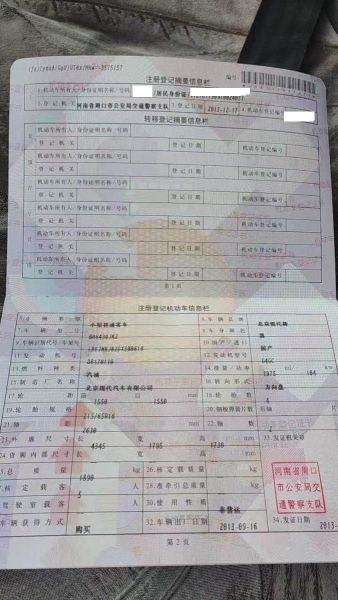 注册登记摘要信息栏
编号
1.机动车所有人/身份证明名称/号码
/居民身份证/
2.登记机关
河南省周口市公安局交通警察支队
3.登记日期
2013-12-17
4.机动车登记编号
转移登记摘要信息栏
机动车所有人/身份证明名称/号码
登记机关
登记日期
机动车登记编号
机动车所有人/身份证明名称/号码
登记机关
登记日期
机动车登记编号
机动车所有人/身份证明名称/号码
登记机关
登记日期
机动车登记编号
机动车所有人/身份证明名称/号码
登记机关
登记日期
机动车登记编号
第1页
注册登记机动车信息栏
5.车辆类型
小型普通客车
6.车辆品牌
北京现代牌
7.车辆型号
8.车身颜色
黑
9.车辆识别代号/车架号
10.国产/进口
国产
11.发动机号
12.发动机型号
G4GC
13.燃料种类
汽油
14.排量/功率
1975
ml/
104
kw
15.制造厂名称
北京现代汽车有限公司
16.转向形式
方向盘
17.轮距
前
1550
后
1550
mm
18.轮胎数
4
19.轮胎规格
215/65R16
20.钢板弹簧片数
后轴
片
21.轴距
2630
mm
22.轴数
2
23.外廓尺寸
长
4345
宽
1795
高
1730
mm
33.发证机关章
24.货厢内部尺寸
长
宽
高
mm
25.总质量
1890
kg
26.核定载质量
kg
27.核定载客
5
人
28.准牵引总质量
kg
29.驾驶室载客
人
30.使用性质
非营运
河南省周口
市公安局交
通警察支队
31.车辆获得方式
购买
32.车辆出厂日期
2013-09-16
34.发证日期
2013-
第2页